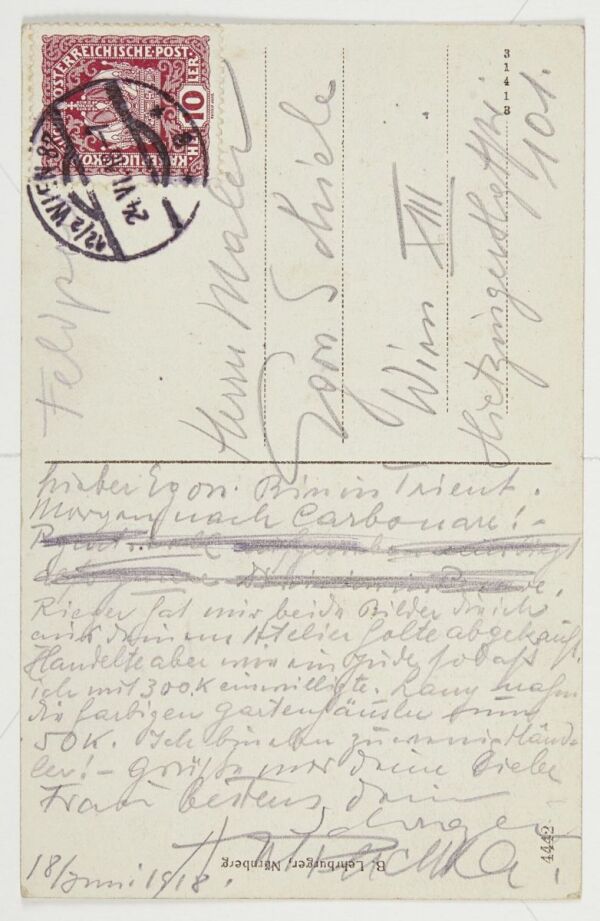 ÖSTERREICHISCHE·POST
10
12/2 WIEN 88
24 VI
31413
Feldp
Herrn Maler
Egon Schiele
Wien XIII
Hietzinger
101.
Lieber Egon. Bin in Trient.
Morgen nach Carbonare! –
Rieger hat mir beide Bilder die ich
aus deinem Atelier holte abgekauft.
Handelte aber wie ein Jude sodaß
ich mit 300 K einwilligte. Lany nahm
die farbigen Gartenhäusln um
50 K. Ich bin eben zu wenig Händ-
ler! – Grüße mir deine liebe
Frau bestens dein
18/Juni 1918.
B. Lehrburger, Nürnberg
4442